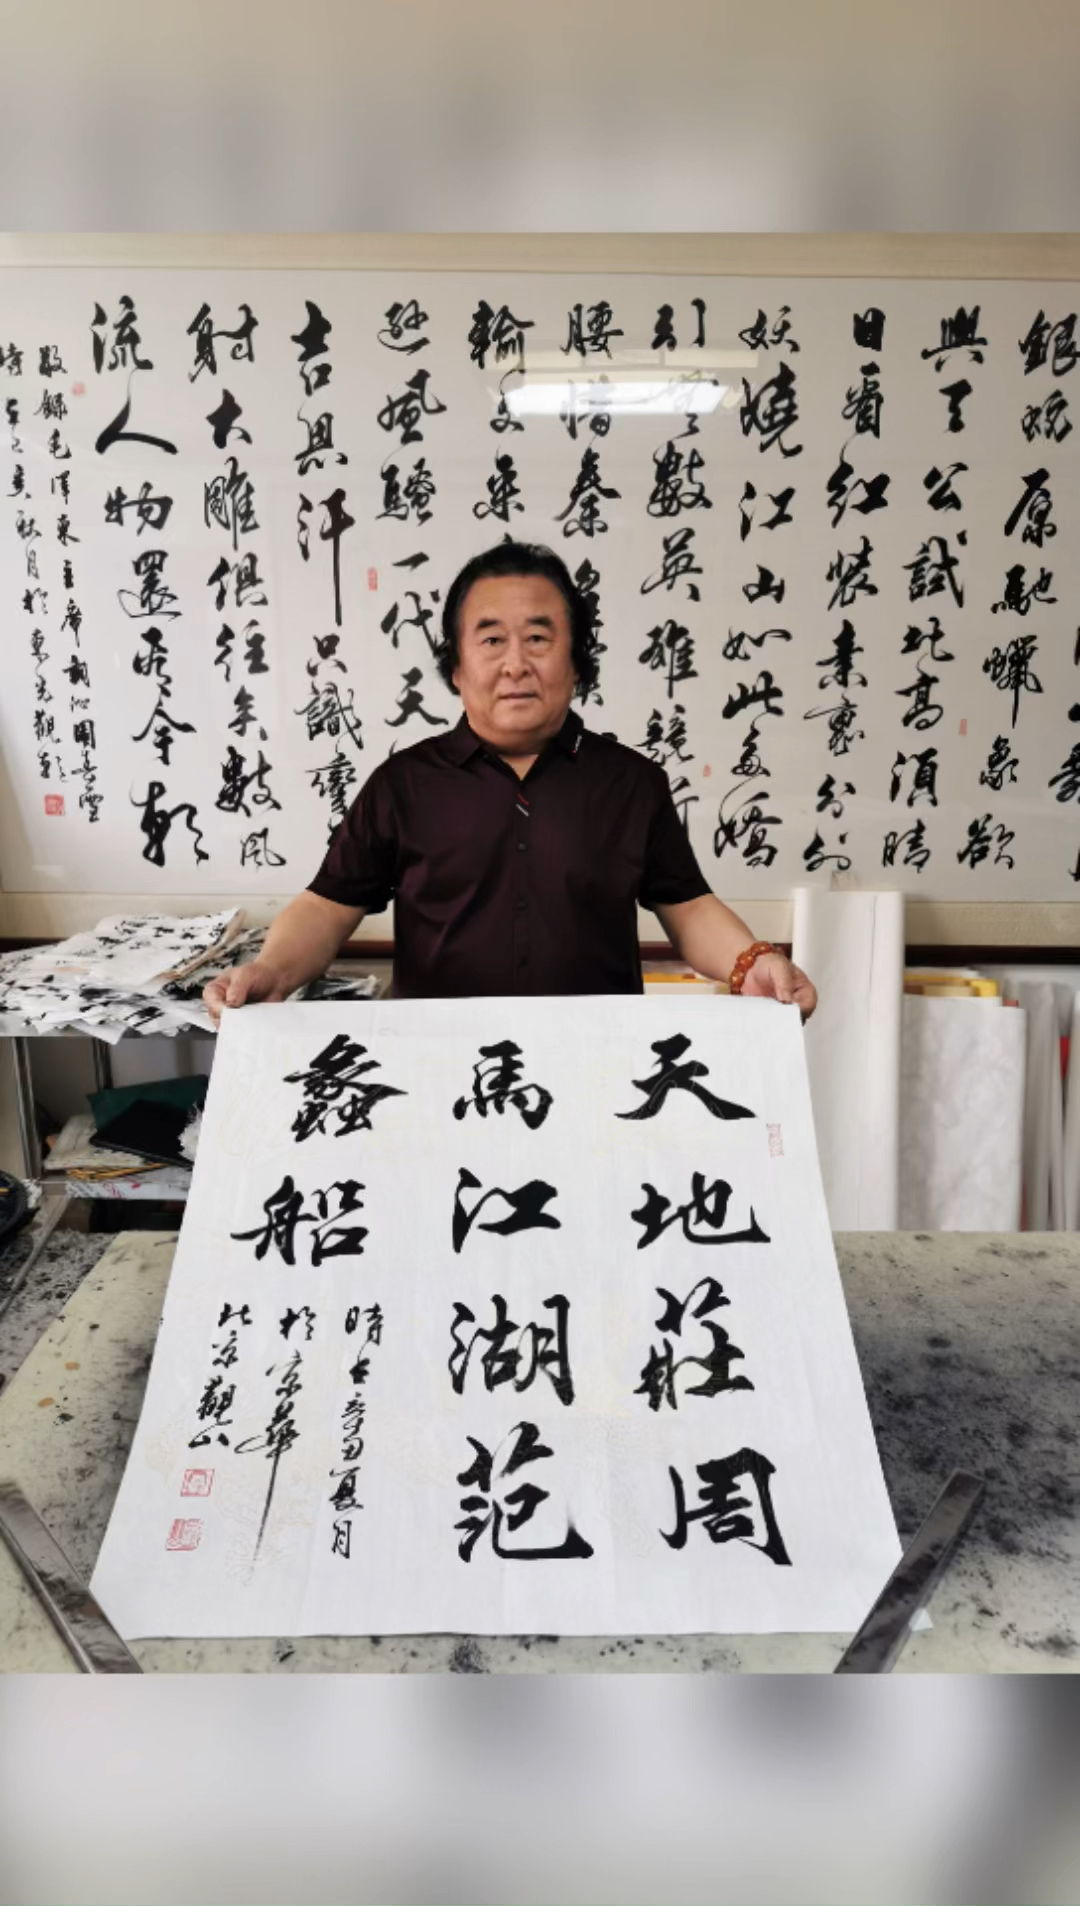 銀蛇原馳蠟象欲
與天公試比高須晴
日看紅裝素裹分外
妖嬈江山如此多嬌
引無數英雄競折
腰惜秦皇漢
輸文采
遜風騷一代天
吉思汗只識彎
射大雕俱往矣數風
流人物還看今朝
敬錄毛澤東主席詞沁園春雪
時在己亥秋月於東光觀
天地莊周
馬江湖范
蠡船
時在辛丑夏月
於京華
北京觀山